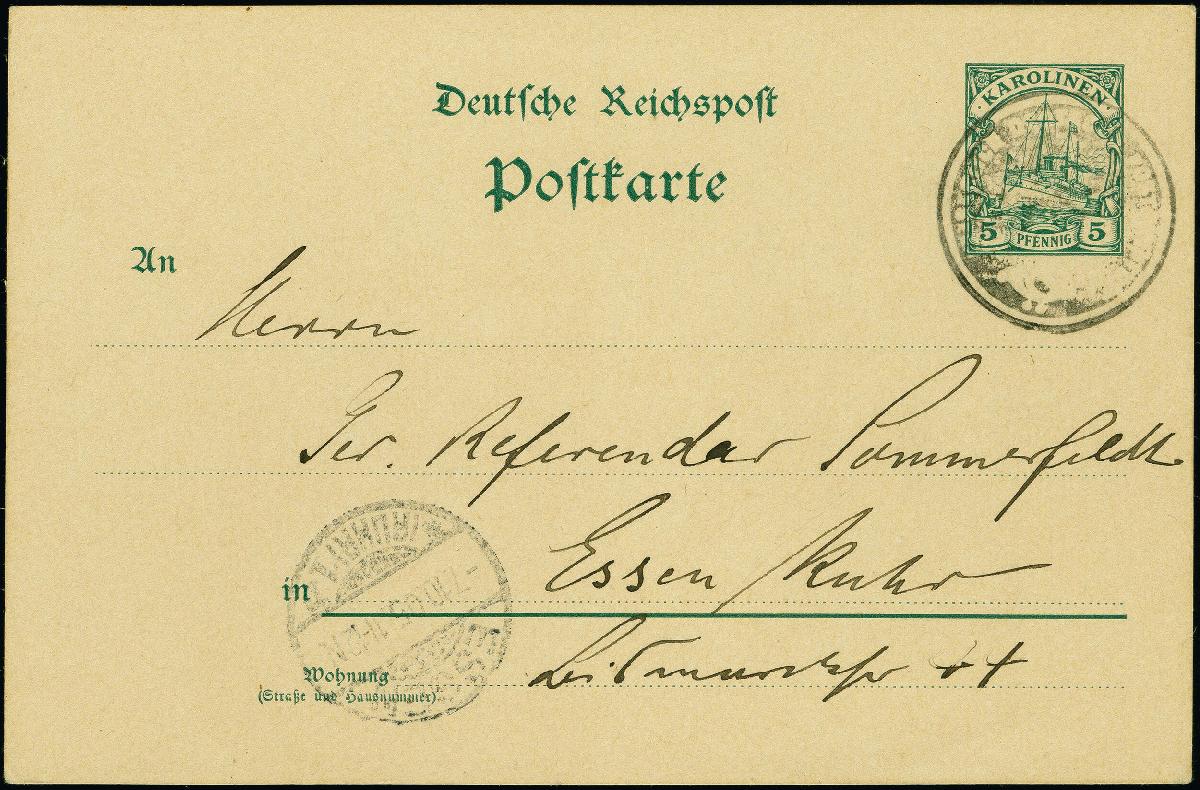 Deutsche Reichspost
Postkarte
KAROLINEN
5 PFENNIG 5
An
Herrn
Ger. Referendar Sommerfeldt
in
Essen/Ruhr
Wohnung
(Straße und Hausnummer)
44